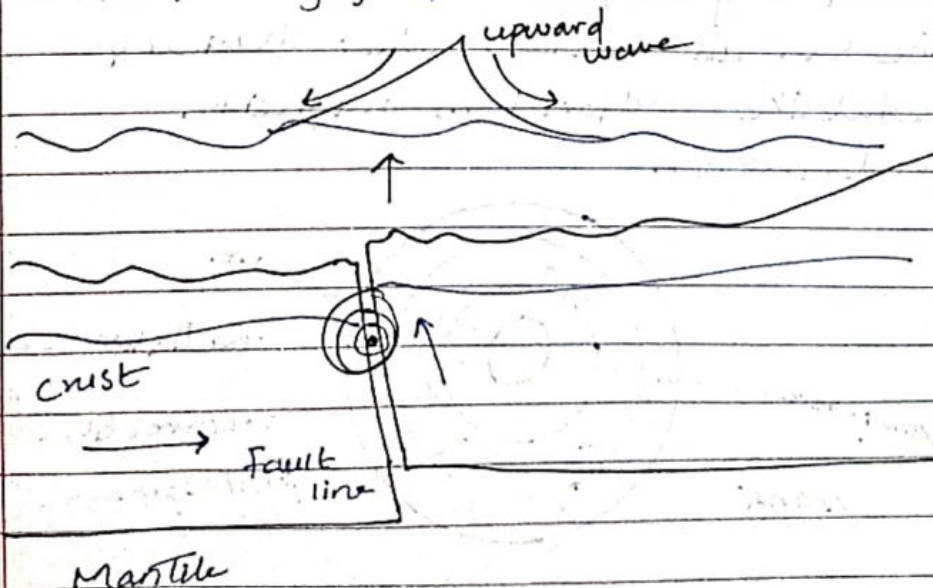 upward
wave
Crust
fault
line
Mantle